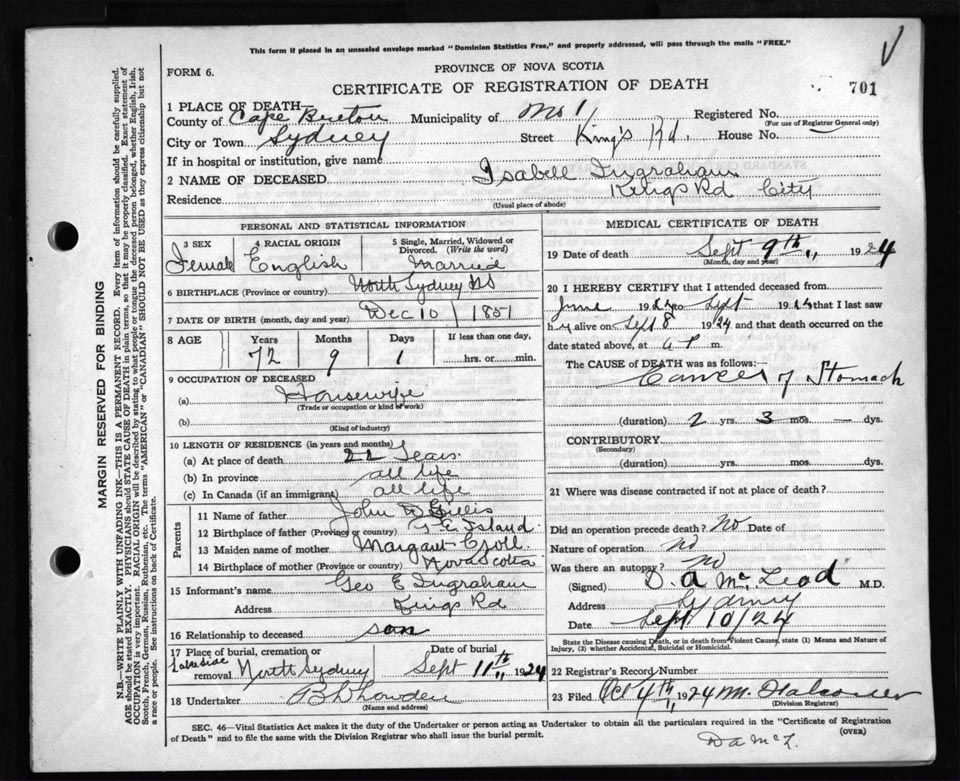 This form if placed in an unsealed envelope marked "Dominion Statistics Free," and properly addressed, will pass through the mails "FREE."
FORM 6.
PROVINCE OF NOVA SCOTIA
CERTIFICATE OF REGISTRATION OF DEATH
701
1 PLACE OF DEATH
County of Cape Breton Municipality of No 1 Registered No.
(For use of Registrar General only)
City or Town Sydney Street King's Rd. House No.
If in hospital or institution, give name
2 NAME OF DECEASED Isabell Ingraham
Residence Kings Rd City
(Usual place of abode)
PERSONAL AND STATISTICAL INFORMATION
3 SEX Female
4 RACIAL ORIGIN English
5 Single, Married, Widowed or Divorced. (Write the word) Married
6 BIRTHPLACE (Province or country) North Sydney NS
7 DATE OF BIRTH (month, day and year) Dec 10 1851
8 AGE Years Months Days If less than one day,
72 9 1 hrs. or min.
9 OCCUPATION OF DECEASED
(a) Housewife
(Trade or occupation or kind of work)
(b)
(Kind of industry)
10 LENGTH OF RESIDENCE (in years and months)
(a) At place of death 22 Years
(b) In province all life
(c) In Canada (if an immigrant) all life
Parents
11 Name of father John Gillis
12 Birthplace of father (Province or country) P. E. Island
13 Maiden name of mother Margaret
14 Birthplace of mother (Province or country) Nova Scotia
15 Informant's name Geo E Ingraham
Address Kings Rd
16 Relationship to deceased son
17 Place of burial, cremation or removal Lakeside North Sydney
Date of burial Sept 11th, 1924
18 Undertaker
(Name and address)
MEDICAL CERTIFICATE OF DEATH
19 Date of death Sept 9th, 1924
(Month, day and year)
20 I HEREBY CERTIFY that I attended deceased from
June 1924 to Sept 1924 that I last saw
her alive on Sept 8 1924 and that death occurred on the
date stated above, at a m.
The CAUSE OF DEATH was as follows:
Cancer of Stomach
(duration) 2 yrs. 3 mos. — dys.
CONTRIBUTORY
(Secondary)
(duration) yrs. mos. dys.
21 Where was disease contracted if not at place of death?
Did an operation precede death? No Date of
Nature of operation no
Was there an autopsy? no
(Signed) D. A McLeod M.D.
Address Sydney
Date Sept 10/24
State the Disease causing Death, or in death from Violent Causes, state (1) Means and Nature of Injury, (2) whether Accidental, Suicidal or Homicidal.
22 Registrar's Record Number
23 Filed Oct 4th, 1924 M.
(Division Registrar)
SEC. 46—Vital Statistics Act makes it the duty of the Undertaker or person acting as Undertaker to obtain all the particulars required in the "Certificate of Registration
of Death" and to file the same with the Division Registrar who shall issue the burial permit.
(OVER)
D a McL
MARGIN RESERVED FOR BINDING
N.B.—WRITE PLAINLY WITH UNFADING INK—THIS IS A PERMANENT RECORD. Every item of information should be carefully supplied.
AGE should be stated EXACTLY. PHYSICIANS should STATE CAUSE OF DEATH in plain terms, so that it may be properly classified. Exact statement of
OCCUPATION is very important. RACIAL ORIGIN will be described by stating to what people or tongue the deceased person belonged, whether English, Irish,
Scotch, French, German, Russian, Ruthenian, etc. The terms "AMERICAN" or "CANADIAN" SHOULD NOT BE USED as they express citizenship but not
a race or people. See instructions on back of Certificate.